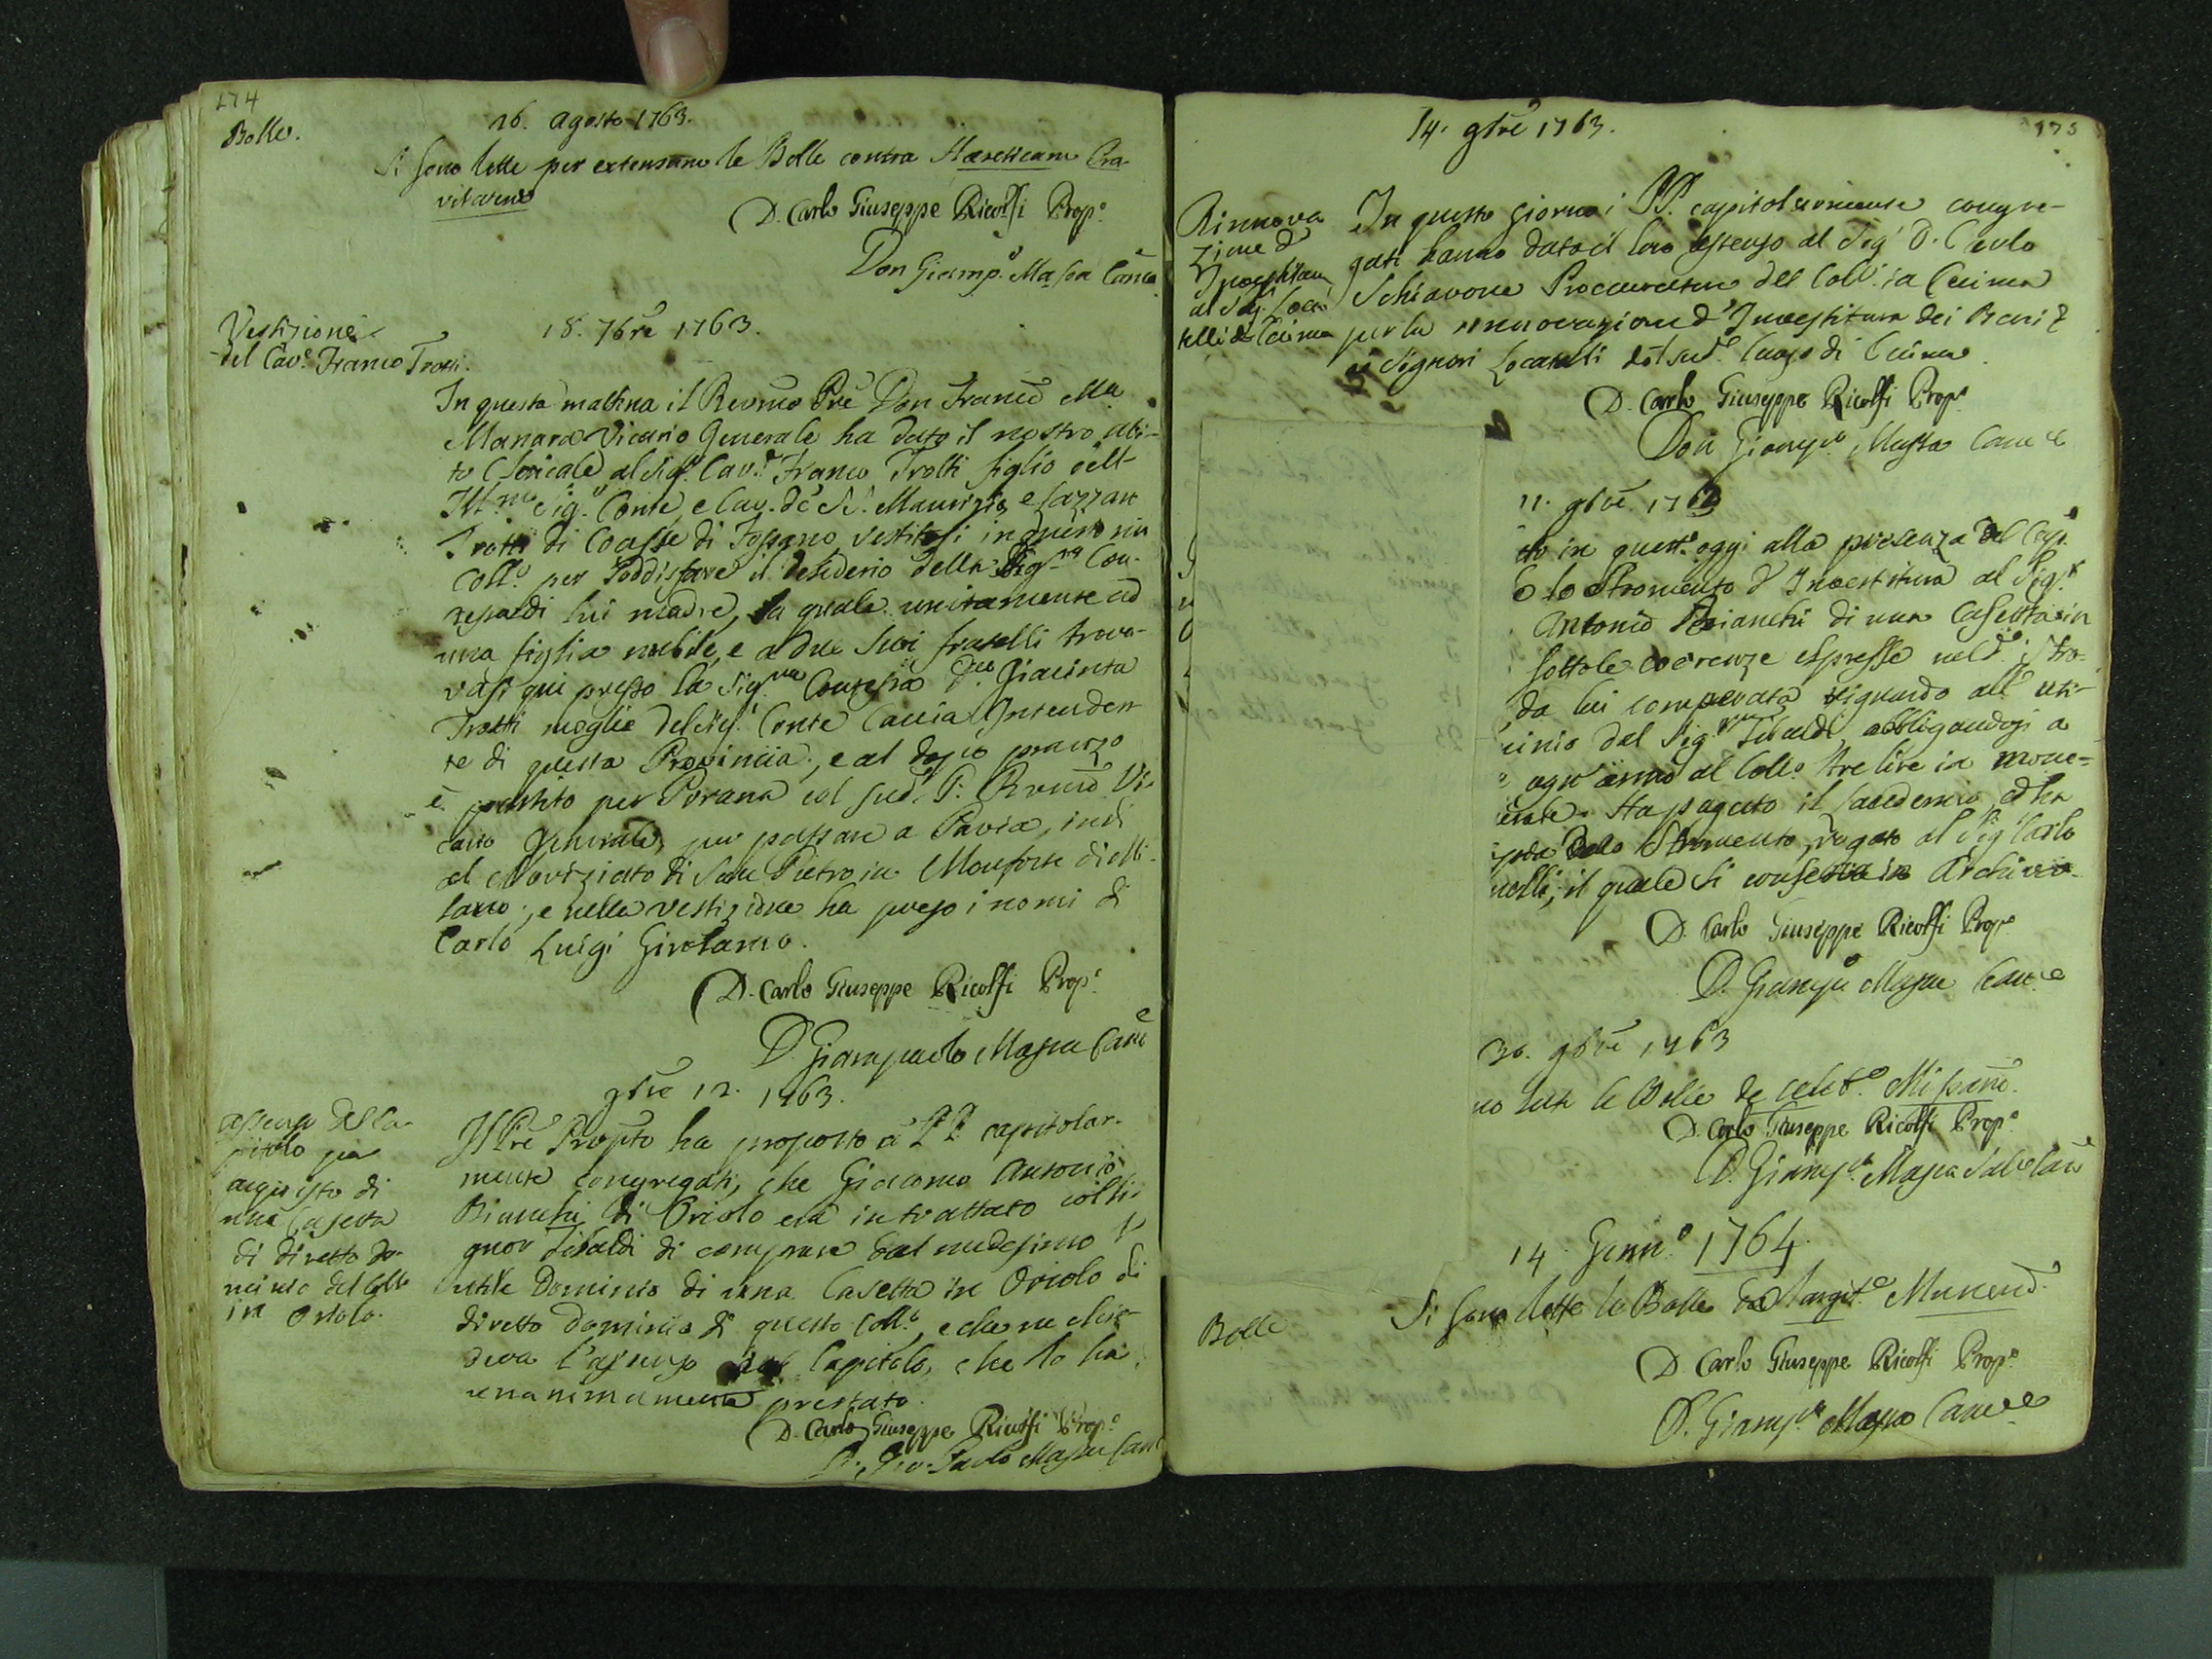 174
Bolle.
26. Agosto 1763.
Si sono lette per extensum le Bolle contra Hæreticam Pra-
vitatem
D. Carlo Giuseppe Ricolfi Prop.o
Don Giamp.o Massa Canc.e
Vestizione
del Cav.e Franco Trotti.
18. 7bre 1763.
In questa mattina il Revmo Pre Don Franco Ma
Manara Vicario Generale ha dato il nostro abi-
to Clericale al Sig.r Cav.e Franco Trotti figlio dell'
Ill.mo Sig.r Conte, e Cav. de S.S. Maurizio, e Lazzaro
Trotti di Coasse di Fossano vestitosi in questo nro
Coll.o per soddisfare il desiderio della Sig.ra Con-
tessa di lui madre, la quale unitamente ad
una figlia nubile, e a due suoi fratelli trova-
vasi qui presso la Sig.ra Contessa D.na Giacinta
Trotti moglie del Sig.r Conte Caccia Intenden-
te di questa Provincia; e al dopo pranzo
è partito per Porana col sud.o P. Revmo Vi-
cario Generale, per passare a Pavia, indi
al Noviziato di San Pietro in Monforte di Mi-
lano; e nella vestizione ha preso i nomi di
Carlo Luigi Girolamo.
D. Carlo Giuseppe Ricolfi Prop.o
D. Giampaolo Massa Canc.e
9bre 12. 1763.
Assenso del Ca-
pitolo per
acquisto di
una Casetta
di diretto do-
minio del Coll.o
in Oriolo.
Il Pre Propto ha proposto a' PP. capitolar-
mente congregati, che Giacomo Antonio
Bianchi di Oriolo era in trattato col Si-
gnor Tibaldi di comprare dal medesimo l'
utile Dominio di una Casetta in Oriolo di
diretto dominio di questo Coll.o, e che ne chie-
deva l'assenso dal Capitolo, che lo ha
unanimamente prestato.
D. Carlo Giuseppe Ricolfi Prop.o
D. Gio. Paolo Massa Canc.
175
14. 9bre 1763.
Rinnova
zione d'
Investitura
ai Sig.i Loca
telli di Cecima
In questo giorno i PP. capitolarmente congre-
gati hanno dato il loro assenso al Sig.r D. Carlo
Schiavone Procuratore del Coll.o in Cecima
per la rinnovazione d'Investitura dei Beni
ai Signori Locatelli del sud.o luogo di Cecima.
D. Carlo Giuseppe Ricolfi Prop.o
Don Giamp.o Massa Canc.e
11. 9bre. 1763
to in quest'oggi alla presenza del Cap.o
lo Stromento d'Investitura al Sig.r
Antonio Bianchi di una Casetta in
sotto le coerenze espresse nel d.o Stro-
da lui comperata riguardo all'uti-
inio dal Sig.r Tibaldi obbligandosi a
ogn'anno al Coll.o tre lire in mone-
Ha pagato il laudemio, ed ha
dello Stromento rogato al Sig.r Carlo
nelli, il quale si conserva in Archivio.
D. Carlo Giuseppe Ricolfi Prop.o
D. Giamp.o Massa Canc.e
30. 9bre 1763
no lette le Bolle de celeb.e Missarũ.
D. Carlo Giuseppe Ricolfi Prop.o
D. Giamp.o Massa Canc.e
14. Genn.o 1764.
Bolle
Si sono lette le Bolle de largit.e Munerũ.
D. Carlo Giuseppe Ricolfi Prop.o
D. Giamp.o Massa Canc.e